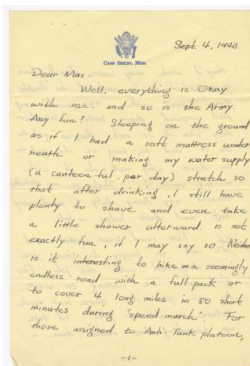 CAMP SHELBY, MISS.
Sept. 4, 1943
Dear Mas.
Well, everything is Okay
with me, and so is the Army
Any fun? Sleeping on the ground
as if I had a soft mattress under
neath or making my water supply
(a canteen-ful, per day) stretch so
that after drinking, I still have
plenty to shave and even take
a little shower afterward is not
exactly fun, if I may say so.
is it interesting to hike on a seemingly
endless road with a full pack or
to cover 4 long miles in 50 short
minutes during 'speed march'. For
those assigned to Anti Tank platoons,
-1-